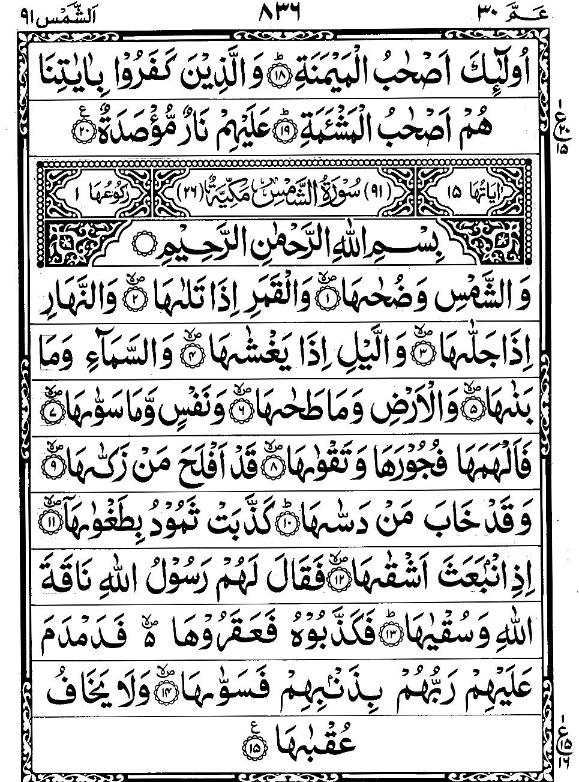 عَمَّ ٣٠ ٨٣٦ اَلشَّمْس ٩١
اُولٰٓئِكَ اَصْحٰبُ الْمَيْمَنَةِ ؕ ۱۸ وَ الَّذِيْنَ كَفَرُوْا بِاٰيٰتِنَا
هُمْ اَصْحٰبُ الْمَشْـَٔمَةِ ؕ ۱۹ عَلَيْهِمْ نَارٌ مُّؤْصَدَةٌ ع ۲۰
اٰيَاتُهَا ۱۵ (۹۱) سُوْرَةُ الشَّمْسِ مَكِّيَّةٌ (۲۶) رُكُوْعُهَا ۱
بِسْمِ اللّٰهِ الرَّحْمٰنِ الرَّحِيْمِ
وَ الشَّمْسِ وَ ضُحٰىهَا ۪ۙ ۱ وَ الْقَمَرِ اِذَا تَلٰىهَا ۪ۙ ۲ وَ النَّهَارِ
اِذَا جَلّٰىهَا ۪ۙ ۳ وَ الَّيْلِ اِذَا يَغْشٰىهَا ۪ۙ ۴ وَ السَّمَآءِ وَ مَا
بَنٰىهَا ۪ۙ ۵ وَ الْاَرْضِ وَ مَا طَحٰىهَا ۪ۙ ۶ وَ نَفْسٍ وَّ مَا سَوّٰىهَا ۪ۙ ۷
فَاَلْهَمَهَا فُجُوْرَهَا وَ تَقْوٰىهَا ۪ۙ ۸ قَدْ اَفْلَحَ مَنْ زَكّٰىهَا ۪ۙ ۹
وَ قَدْ خَابَ مَنْ دَسّٰىهَا ؕ ۱۰ كَذَّبَتْ ثَمُوْدُ بِطَغْوٰىهَاۤ ۪ۙ ۱۱
اِذِ انْۢبَعَثَ اَشْقٰىهَا ۪ۙ ۱۲ فَقَالَ لَهُمْ رَسُوْلُ اللّٰهِ نَاقَةَ
اللّٰهِ وَ سُقْيٰهَا ؕ ۱۳ فَكَذَّبُوْهُ فَعَقَرُوْهَا ۪ۙ ۵ فَدَمْدَمَ
عَلَيْهِمْ رَبُّهُمْ بِذَنْۢبِهِمْ فَسَوّٰىهَا ۪ۙ ۱۴ وَ لَا يَخَافُ
عُقْبٰهَا ع ۱۵
۱ ع ۲۰ ۱۵
۱ ع ۱۵ ۱۶